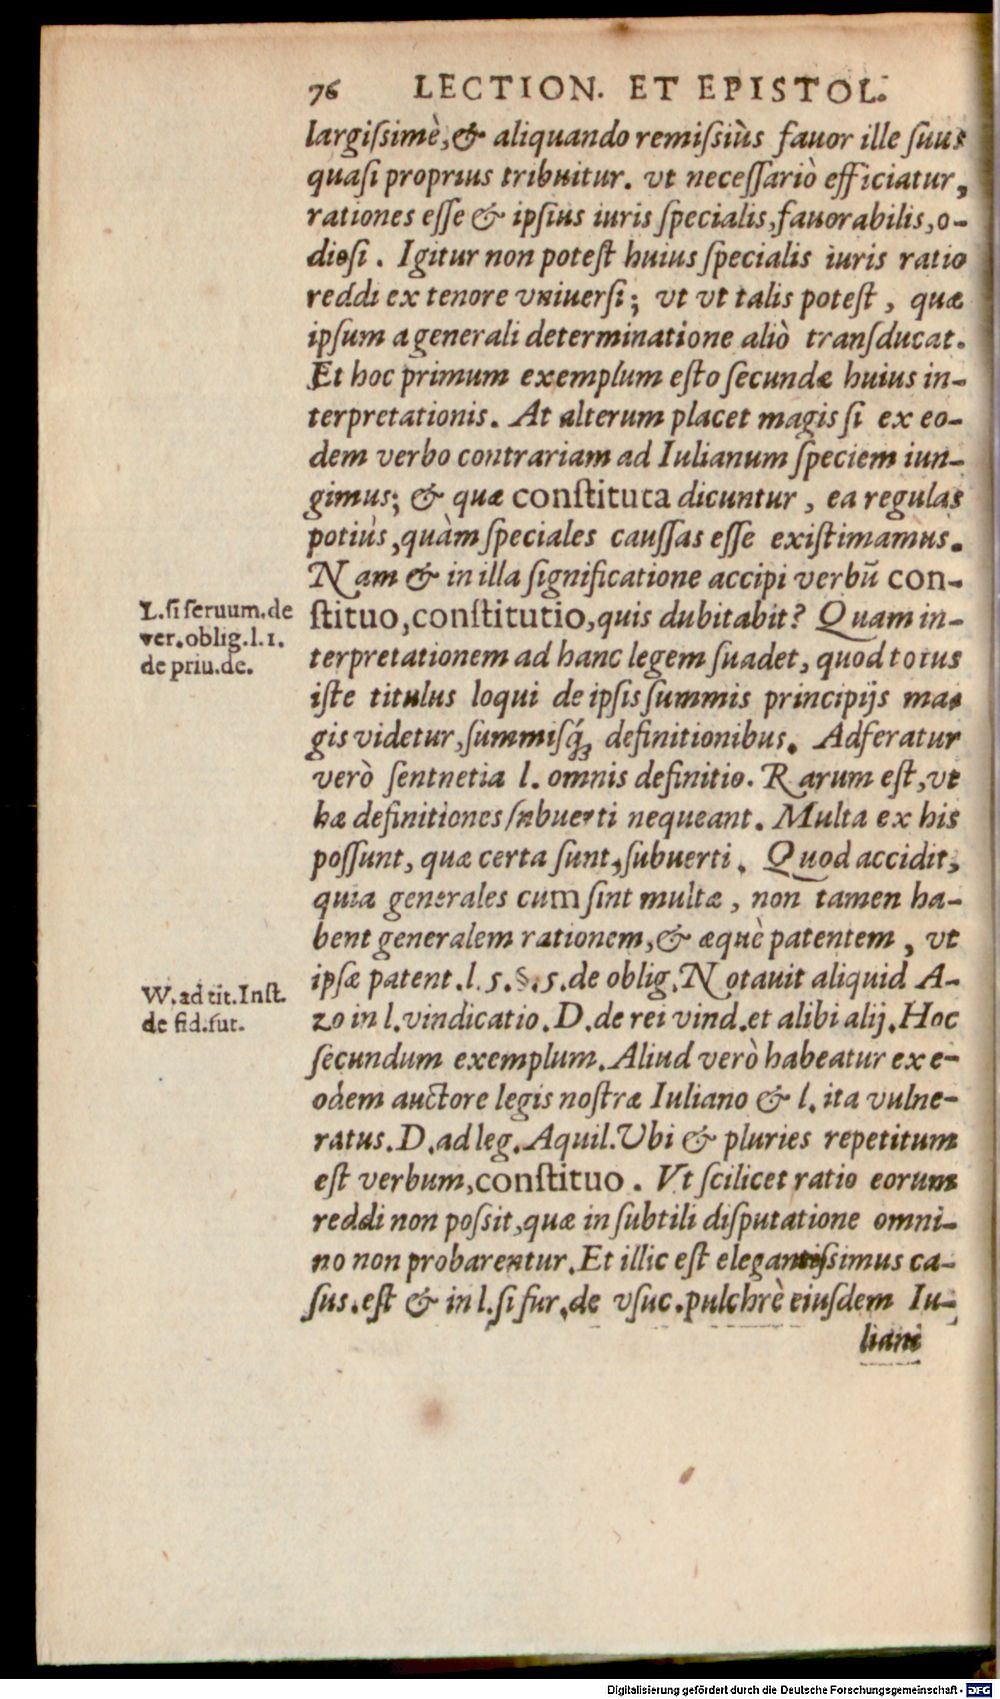 76 LECTION. ET EPISTOL.
largiſsimè, & aliquando remiſsiùs fauor ille ſuus
quaſi proprius tribuitur. vt neceſſariò efficiatur,
rationes eſſe & ipſius iuris ſpecialis, fauorabilis, o-
dioſi. Igitur non poteſt huius ſpecialis iuris ratio
reddi ex tenore vniuerſi; vt vt talis poteſt, quæ
ipſum a generali determinatione aliò tranſducat.
Et hoc primum exemplum eſto ſecundæ huius in-
terpretationis. At alterum placet magis ſi ex eo-
dem verbo contrariam ad Iulianum ſpeciem iun-
gimus; & quæ conſtituta dicuntur, ea regulas
potiùs, quàm ſpeciales cauſſas eſſe exiſtimamus.
Nam & in illa ſignificatione accipi verbũ con-
L. ſi ſeruum. de
ſtituo, conſtitutio, quis dubitabit? Quam in-
ver. oblig. l. 1.
terpretationem ad hanc legem ſuadet, quod totus
de priu. de.
iſte titulus loqui de ipſis ſummis principijs ma-
gis videtur, ſummiſq́ꝫ definitionibus. Adferatur
verò ſentnetia l. omnis definitio. Rarum eſt, vt
hæ definitiones ſubuerti nequeant. Multa ex his
poſſunt, quæ certa ſunt, ſubuerti. Quod accidit,
quia generales cum ſint multæ, non tamen ha-
bent generalem rationem, & æquè patentem, vt
ipſæ patent. l. 5. §. 5. de oblig. Notauit aliquid A-
W. ad tit. Inſt.
zo in l. vindicatio. D. de rei vind. et alibi alij. Hoc
de fid. ſut.
ſecundum exemplum. Aliud verò habeatur ex e-
odem auctore legis noſtræ Iuliano & l. ita vulne-
ratus. D. ad leg. Aquil. Ubi & pluries repetitum
eſt verbum, conſtituo. Vt ſcilicet ratio eorum
reddi non poſſit, quæ in ſubtili diſputatione omni-
no non probarentur. Et illic eſt elegantiſsimus ca-
ſus. eſt & in l. ſi fur. de vſuc. pulchrè eiuſdem Iu-
liani
Digitalisierung gefördert durch die Deutsche Forschungsgemeinschaft - DFG